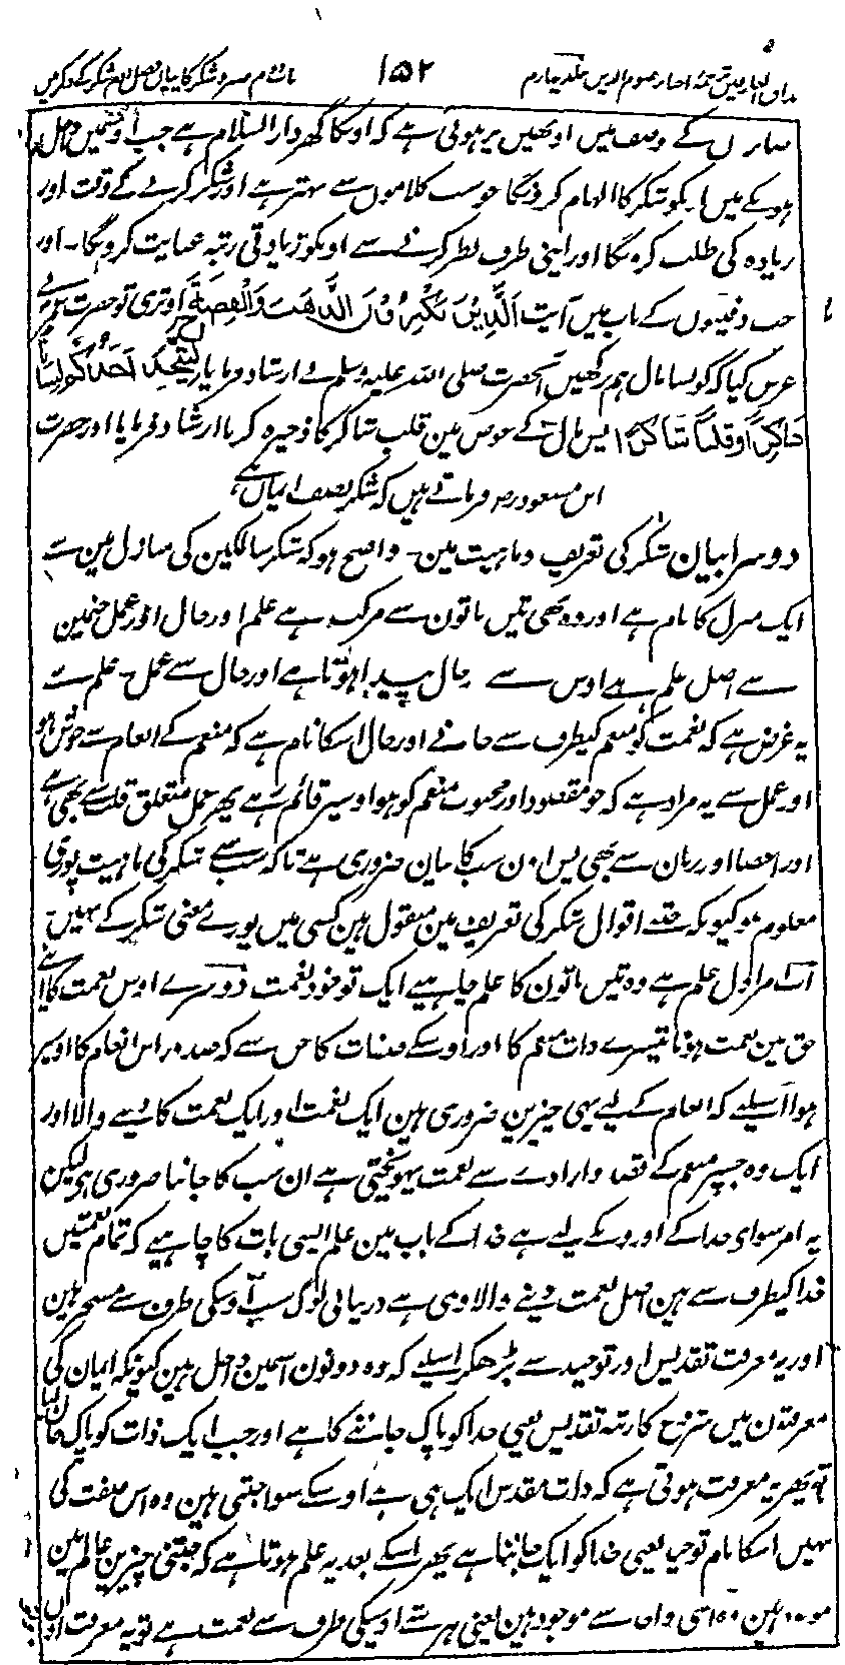 مذاق العارفین ترجمہ احیاء علوم الدین جلد چہارم ۱۵۲ باب دوم صبر و شکر کا بیان فصل دوم شکر کے ذکر میں
صابروں کے وصف میں اونھیں پر ہوئی ہے کہ اونکا گھر دار السلام ہے جب اوسمیں داخل
ہونگے میں اونکو شکر کا الہام کرونگا جو سب کلاموں سے بہتر ہے اور شکر کرنے کے وقت اور
زیادہ کی طلب کرونگا اور اپنی طرف نظر کرنے سے اونکو زیادتی رتبہ عنایت کرونگا۔ اور
جب دفینوں کے باب میں آیت اَلَّذِیْنَ یَکْنِزُوْنَ الذَّهَبَ وَالْفِضَّةَ اوتری تو حضرت عمر نے
عرض کیا کہ کونسا مال ہم رکھیں آنحضرت صلی اللہ علیہ وسلم نے ارشاد فرمایا لِیَتَّخِذْ اَحَدُکُمْ لِسَانًا
ذَاکِرًا وَقَلْبًا شَاکِرًا پس مال کے عوض مین قلب شاکر کا ذخیرہ کرنا ارشاد فرمایا اور حضرت
ابن مسعود رض فرماتے ہیں کہ شکر نصف ایمان ہے
دوسرا بیان شکر کی تعریف و ماہیت مین۔ واضح ہو کہ شکر سالکین کی منازل مین سے
ایک منزل کا نام ہے اور وہ بھی تین باتون سے مرکب ہے علم اور حال اور عمل جنمین
سے اصل علم ہے اوس سے حال پیدا ہوتا ہے اور حال سے عمل۔ علم سے
یہ غرض ہے کہ نعمت کو منعم کیطرف سے جانے اور حال اسکا نام ہے کہ منعم کے انعام سے خوش ہو
اور عمل سے یہ مراد ہے کہ جو مقصود اور محبوب منعم کو ہو اوسپر قائم رہے پھر عمل متعلق قلب سے بھی ہے
اور اعضا اور زبان سے بھی پس ان سب کا بیان ضروری ہے تاکہ سب سے شکر کی ماہیت پوری
معلوم ہو کیونکہ جتنے اقوال شکر کی تعریف مین منقول ہین کسی میں پورے معنی شکر کے نہیں
آتے امر اول علم ہے وہ تین باتون کا علم چاہیے ایک تو خود نعمت دوسرے اوس نعمت کا اپنے
حق مین نعمت ہونا تیسرے ذات منعم کا اور اوسکے صفات کا جن سے کہ صدور اس انعام کا اوسپر
ہوا اسلیے کہ انعام کے لیے یہی چیزین ضروری ہین ایک نعمت اور ایک نعمت کا دینے والا اور
ایک وہ جسپر منعم کے قصد و ارادے سے نعمت پہونچتی ہے ان سب کا جاننا ضروری ہی لیکن
یہ امر سوای خدا کے اورونکے لیے ہے خدا کے باب مین علم ایسی بات کا چاہیے کہ تمام نعمتیں
خدا کیطرف سے ہین اصل نعمت دینے والا وہی ہے درمیانی لوگ سب اوسکی طرف سے مسخر ہین
اور یہ معرفت تقدیس اور توحید سے بڑھکر اسلیے کہ وہ دونون اسمین داخل ہین کیونکہ ایمان کی
معرفتون میں شروع کا رتبہ تقدیس یعنی خدا کو پاک جاننے کا ہے اور جب ایک ذات کو پاک جان لیا
تو پھر یہ معرفت ہوتی ہے کہ ذات مقدس ایک ہی ہے اوسکے سوا جتنی ہین وہ اس صفت کی
نہیں اسکا نام توحید یعنی خدا کو ایک جاننا ہے پھر اسکے بعد یہ علم ہوتا ہے کہ جتنی چیزین عالم مین
موجود ہین وہ اسی ذات سے موجود ہین یعنی ہر شے اوسیکی طرف سے نعمت ہے تو یہ معرفت